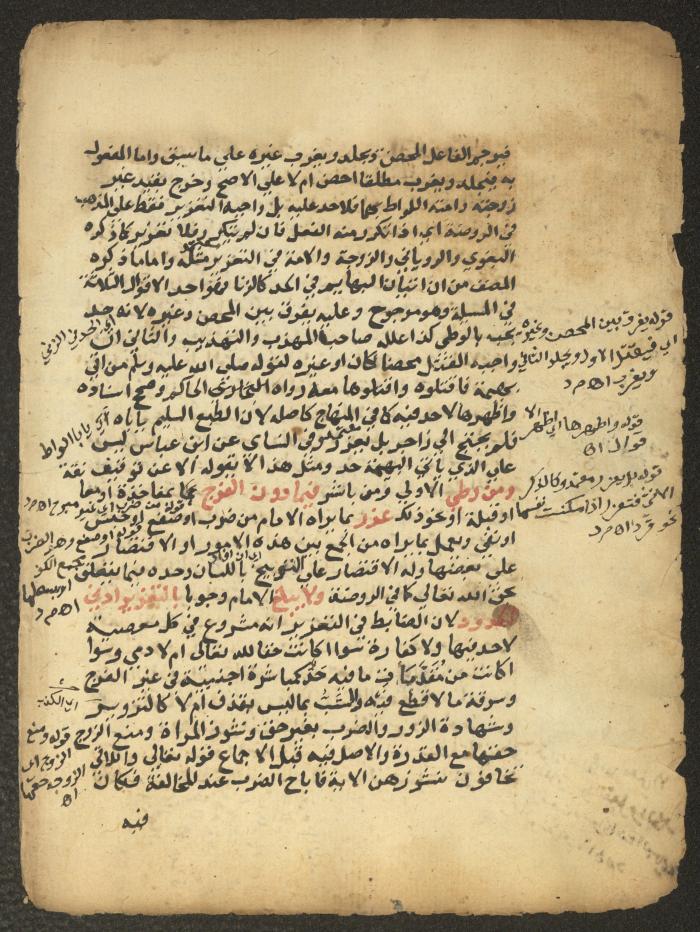 فيرجم الفاعل المحصن ويجلد ويغرب غيره علي ما سبق واما المفعول
به فيجلد ويغرب مطلقا احصن ام لا علي الاصح وخرج بقيد غير
زوجته وامته اللواط بهما فلا حد عليه بل واجبه التعزير فقط علي المذهب
في الروضة اي اذا تكرر منه الفعل فان لم يتكرر فلا تعزير كما ذكره
البغوي والروياني والزوجة والامة في التعزير مثله واما ما ذكره
المصنف من ان اتيان البهايم في الحد كالزنا فهو احد الاقوال الثلاثة
في المسيلة وهو مرجوح وعليه يفرق بين المحصن وغيره لانه حد
يجب بالوطي كذا علله صاحب المهذب والتهذيب والثاني ان
واجبه القتل محصنا كان او غيره لقوله صلي الله عليه وسلم من اتي
بهيمة فاقتلوه واقتلوها معه رواه الحاكم وصحح اسناده
واظهرها لا حد فيه كما في المنهاج كاصله لان الطبع السليم ياباه
فلم يحتج الي زاجر بل يعزر وفي النساي عن ابن عباس ليس
علي الذي ياتي البهيمة حد ومثل هذا لا يقوله الا عن توقيف
ومن وطي الاولي ومن باشر فيما دون الفرج بمفاخذة او معا
او قبلة او نحو ذلك عزر بما يراه الامام من ضرب او صفع او حبس
او نفي ويعمل بما يراه من الجمع بين هذه الامور او الاقتصار
علي بعضها وله الاقتصار علي التوبيخ باللسان وحده فيما يتعلق
بحق الله تعالي كما في الروضة ولا يبلغ الامام وجوبا بالتعزير ادني
الحدود لان الضابط في التعزير انه مشروع في كل معصية
لا حد فيها ولا كفارة سوا اكانت حقا لله تعالي ام لادمي وسوا
اكانت من مقدمات ما فيه حد كمباشرة اجنبية في غير الفرج
وسرقة ما لا قطع فيه والسب بما ليس بقذف ام لا كالتزوير
وشهادة الزور والضرب بغير حق ونشوز المراة ومنع الزوج
حقها مع القدرة والاصل فيه قبل الاجماع قوله تعالي واللاتي
تخافون نشوزهن الاية فاباح الضرب عند المخالفة فكان
فيه
قوله يفرق بين المحصن وغيره
اي فيقتل الاول ويجلد الثاني
ويغرب اه م د
قوله واظهرها اي اظهر
الاقوال اه
قوله بل يعزر
اذا مكنت
قرد اه م د
اي يابا الواط
اي الكذب
قوله ومنع
الزوج اي
الزوجة حقها
اه